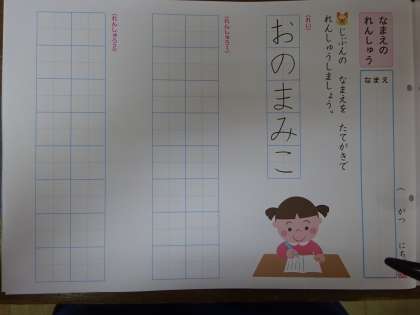 なまえの
れんしゅう
なまえ
（　がつ　にち）
じぶんの　なまえを　たてがきで
れんしゅうしましょう。
（れい）
おのまみこ
（れんしゅう１）
（れんしゅう２）